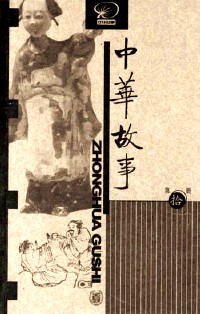 中華故事
ZHONGHUA GUSHI
第拾冊